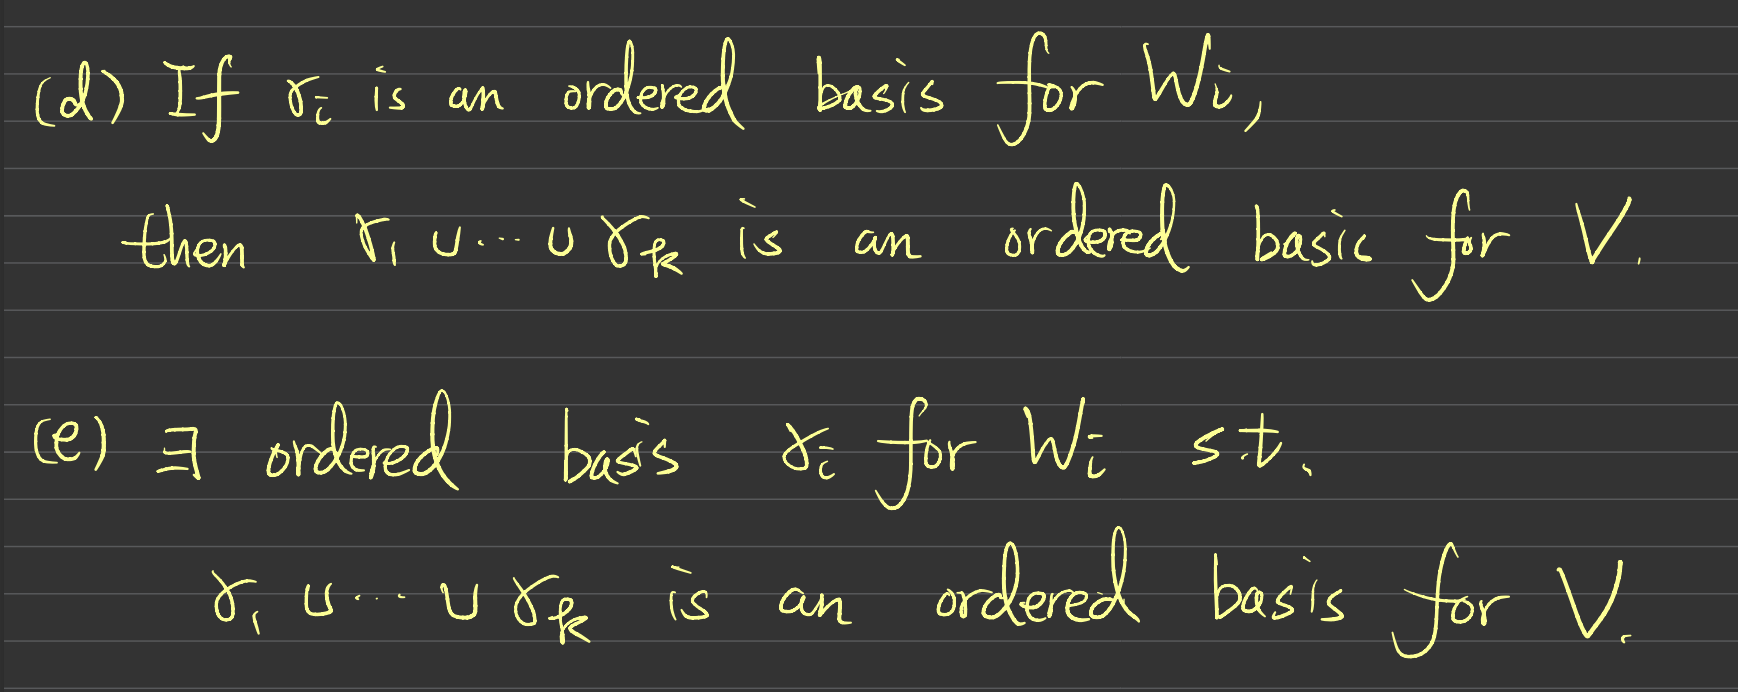 (d) If γᵢ is an ordered basis for Wᵢ,
then γ₁ ∪ ... ∪ γₖ is an ordered basic for V.
(e) ∃ ordered basis γᵢ for Wᵢ s.t.
γ₁ ∪ ... ∪ γₖ is an ordered basis for V.